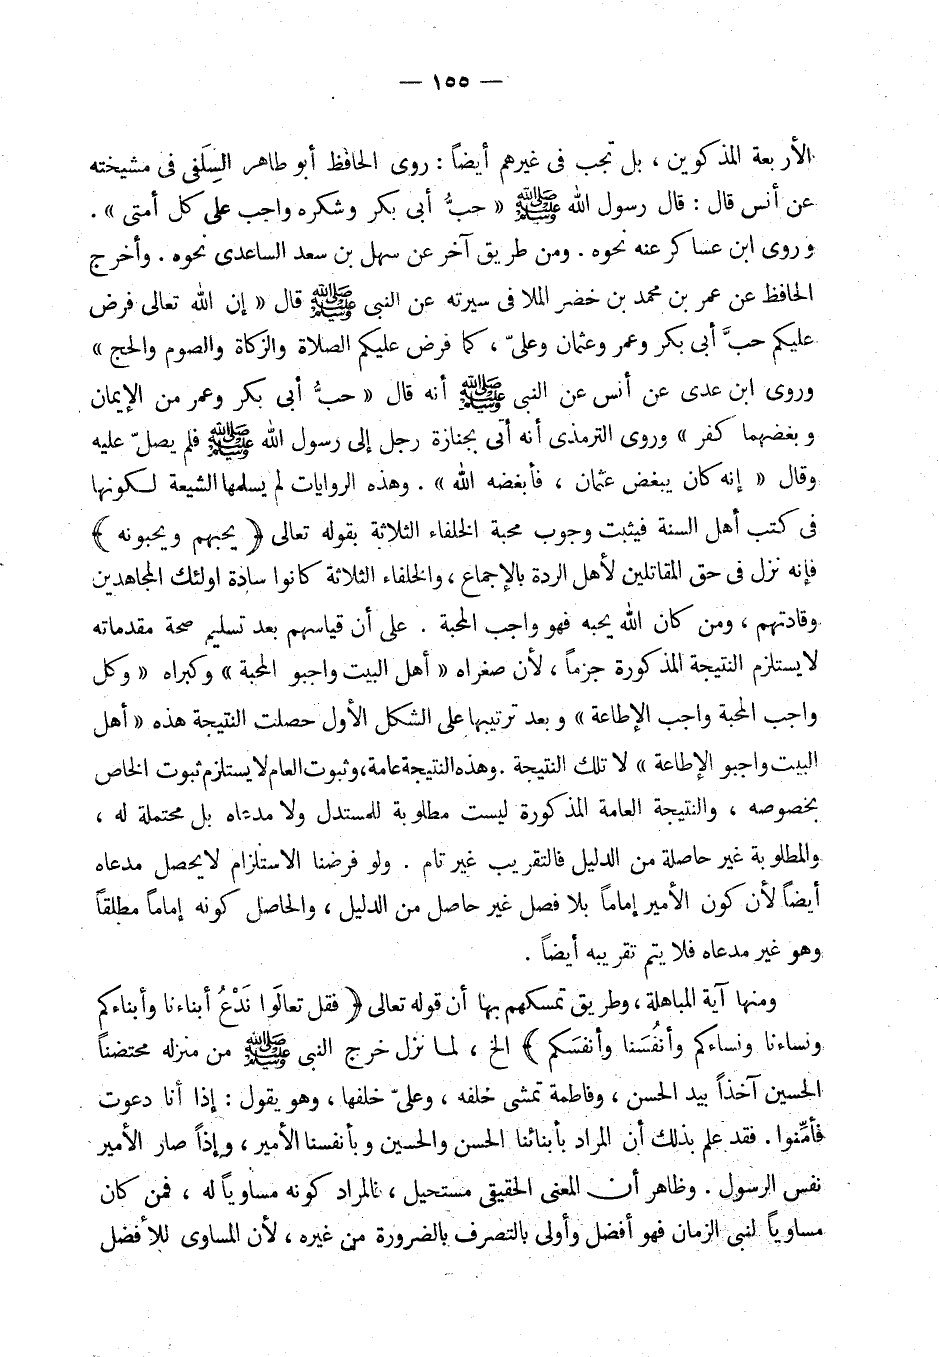 — ١٥٥ —
الأربعة المذكوين ، بل تجب فى غيرهم أيضاً : روى الحافظ أبو طاهر السِلَفى فى مشيخته
عن أنس قال : قال رسول الله ﷺ « حبُّ أبى بكر وشكره واجب على كل أمتى » .
وروى ابن عساكر عنه نحوه . ومن طريق آخر عن سهل بن سعد الساعدى نحوه . وأخرج
الحافظ عن عمر بن محمد بن خضر الملا فى سيرته عن النبى ﷺ قال « إن الله تعالى فرض
عليكم حبَّ أبى بكر وعمر وعثمان وعلىّ ، كما فرض عليكم الصلاة والزكاة والصوم والحج »
وروى ابن عدى عن أنس عن النبى ﷺ أنه قال « حبُّ أبى بكر وعمر من الإيمان
وبغضهما كفر » وروى الترمذى أنه أتى بجنازة رجل إلى رسول الله ﷺ فلم يصلّ عليه
وقال « إنه كان يبغض عثمان ، فأبغضه الله » . وهذه الروايات لم يسلمها الشيعة لكونها
فى كتب أهل السنة فيثبت وجوب محبة الخلفاء الثلاثة بقوله تعالى ﴿ يحبهم ويحبونه ﴾
فإنه نزل فى حق المقاتلين لأهل الردة بالإجماع ، والخلفاء الثلاثة كانوا سادة اولئك المجاهدين
وقادتهم ، ومن كان الله يحبه فهو واجب المحبة . على أن قياسهم بعد تسليم صحة مقدماته
لا يستلزم النتيجة المذكورة جزماً ، لأن صغراه « أهل البيت واجبو المحبة » وكبراه « وكل
واجب المحبة واجب الإطاعة » وبعد ترتيبها على الشكل الأول حصلت النتيجة هذه « أهل
البيت واجبو الإطاعة » لا تلك النتيجة . وهذه النتيجة عامة ، وثبوت العام لا يستلزم ثبوت الخاص
بخصوصه ، والنتيجة العامة المذكورة ليست مطلوبة للمستدل ولا مدعاه بل محتملة له ،
والمطلوبة غير حاصلة من الدليل فالتقريب غير تام . ولو فرضنا الاستلزام لا يحصل مدعاه
أيضاً لأن كون الأمير إماماً بلا فصل غير حاصل من الدليل ، والحاصل كونه إماماً مطلقاً
وهو غير مدعاه فلا يتم تقريبه أيضاً .
ومنها آية المباهلة ، وطريق تمسكهم بها أن قوله تعالى ﴿ فقل تعالَوا نَدْعُ أبناءنا وأبناءكم
ونساءنا ونساءكم وأنفُسَنا وأنفسَكم ﴾ الخ ، لما نزل خرج النبى ﷺ من منزله محتضناً
الحسين آخذاً بيد الحسن ، وفاطمة تمشى خلفه ، وعلىّ خلفها ، وهو يقول : إذا أنا دعوت
فأمِّنوا . فقد علم بذلك أن المراد بأبنائنا الحسن والحسين وبأنفسنا الأمير ، وإذاً صار الأمير
نفس الرسول . وظاهر أن المعنى الحقيقى مستحيل ، فالمراد كونه مساوياً له ، فمن كان
مساوياً لنبى الزمان فهو أفضل وأولى بالتصرف بالضرورة من غيره ، لأن المساوى للأفضل